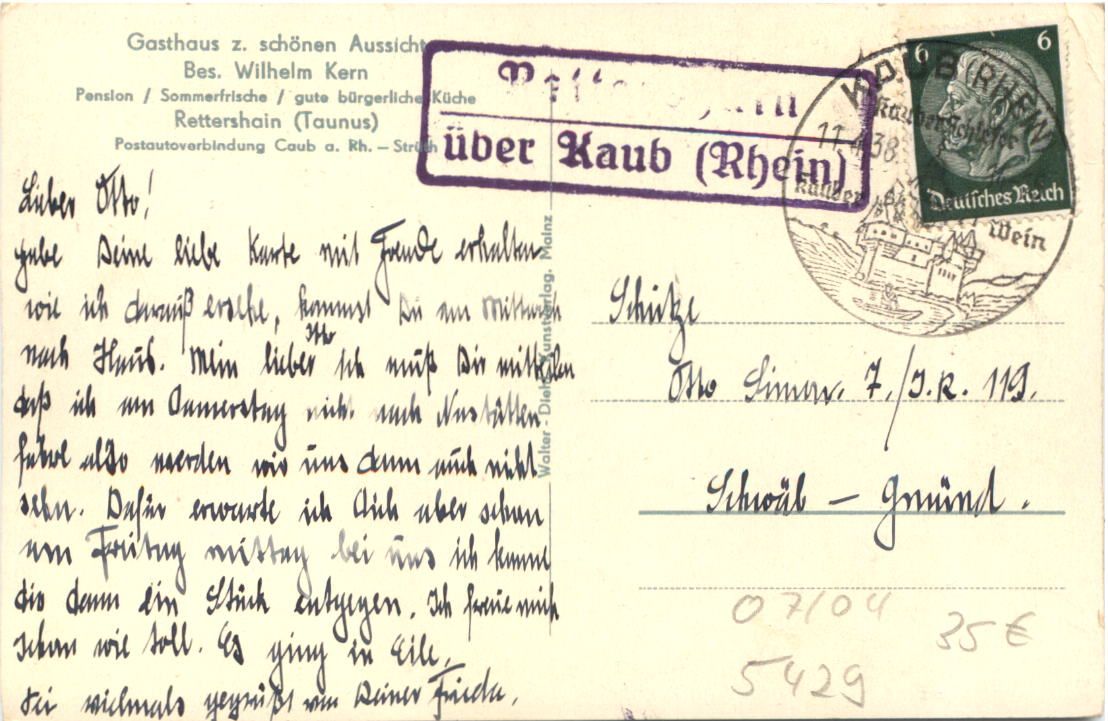 Gasthaus z. schönen Aussicht
Bes. Wilhelm Kern
Pension / Sommerfrische / gute bürgerliche Küche
Rettershain (Taunus)
Postautoverbindung Caub a. Rh. – Strüth
Rettershain
über Kaub (Rhein)
KAUB (RHEIN)
11.4.38
Kauber
Wein
6 6
Deutsches Reich
Lieber Otto!
habe Deine liebe Karte mit Freude erhalten
wie ich darauß ersehe, kommst Du am Mittwoch
nach Haus. Mein lieber Otto ich muß Dir mitteilen
daß ich am Donnerstag nicht nach Nastätten
fahre also werden wir uns dann auch nicht
sehn. Dafür erwarte ich Dich aber schon
am Freitag mittag bei uns ich komme
dir dann ein Stück entgegen. Ich freue mich
schon wie toll. Es ging in Eile.
Sei vielmals gegrüßt von Deiner Frieda.
Walter-Dieht-Kunstverlag. Mainz
Schütze
Otto Simon. 7./J.R. 119.
Schwäb – Gmünd.
07/04
35 €
5429